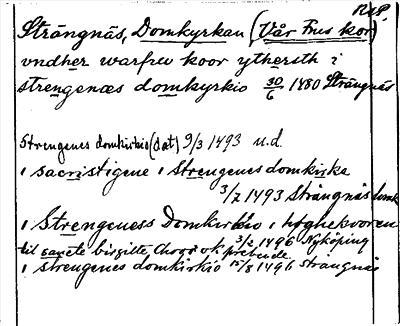 RAP.
Strängnäs, Domkyrkan (Vår Frus kor)
vndher warfrw koor ythersth i
strengenæs domkyrkio 30/6 1480 Strängnäs
Strengenes domkirkio (dat) 9/3 1493 u.d.
i sacristigene i Strengenes domkirke
3/7 1493 Strängnäs
i Strengeness Domkirkio i høghekooren
til sancte birgitte Choor ok prebende 3/2 1496 Nyköping
i strengenes domkirkio 15/8 1496 Strängnäs